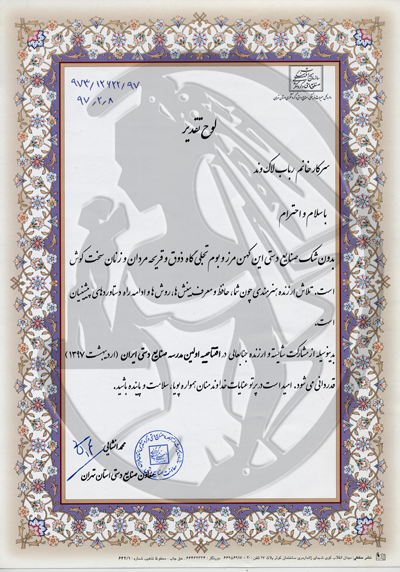 ۹۷۳/۱۲۶۲۲/۹۷
۹۷,۲,۸
لوح تقدیر
سرکار خانم رباب لاک وند
با سلام و احترام
بدون شک صنایع دستی این کهن مرز و بوم تجلی گاه ذوق و قریحه مردان و زنان سخت کوش
است. تلاش ارزنده هنرمندی چون شما، حافظ و معرف بینش ها، روش ها و ادامه راه دستاوردهای پیشینیان
است.
بدینوسیله از مشارکت شایسته و ارزنده جنابعالی در افتتاحیه اولین مدرسه صنایع دستی ایران (اردیبهشت ۱۳۹۷)
قدردانی می شود. امید است در پرتو عنایات خداوند منان همواره پویا، سلامت و پاینده باشید.
محمد افشانی
معاون صنایع دستی استان تهران